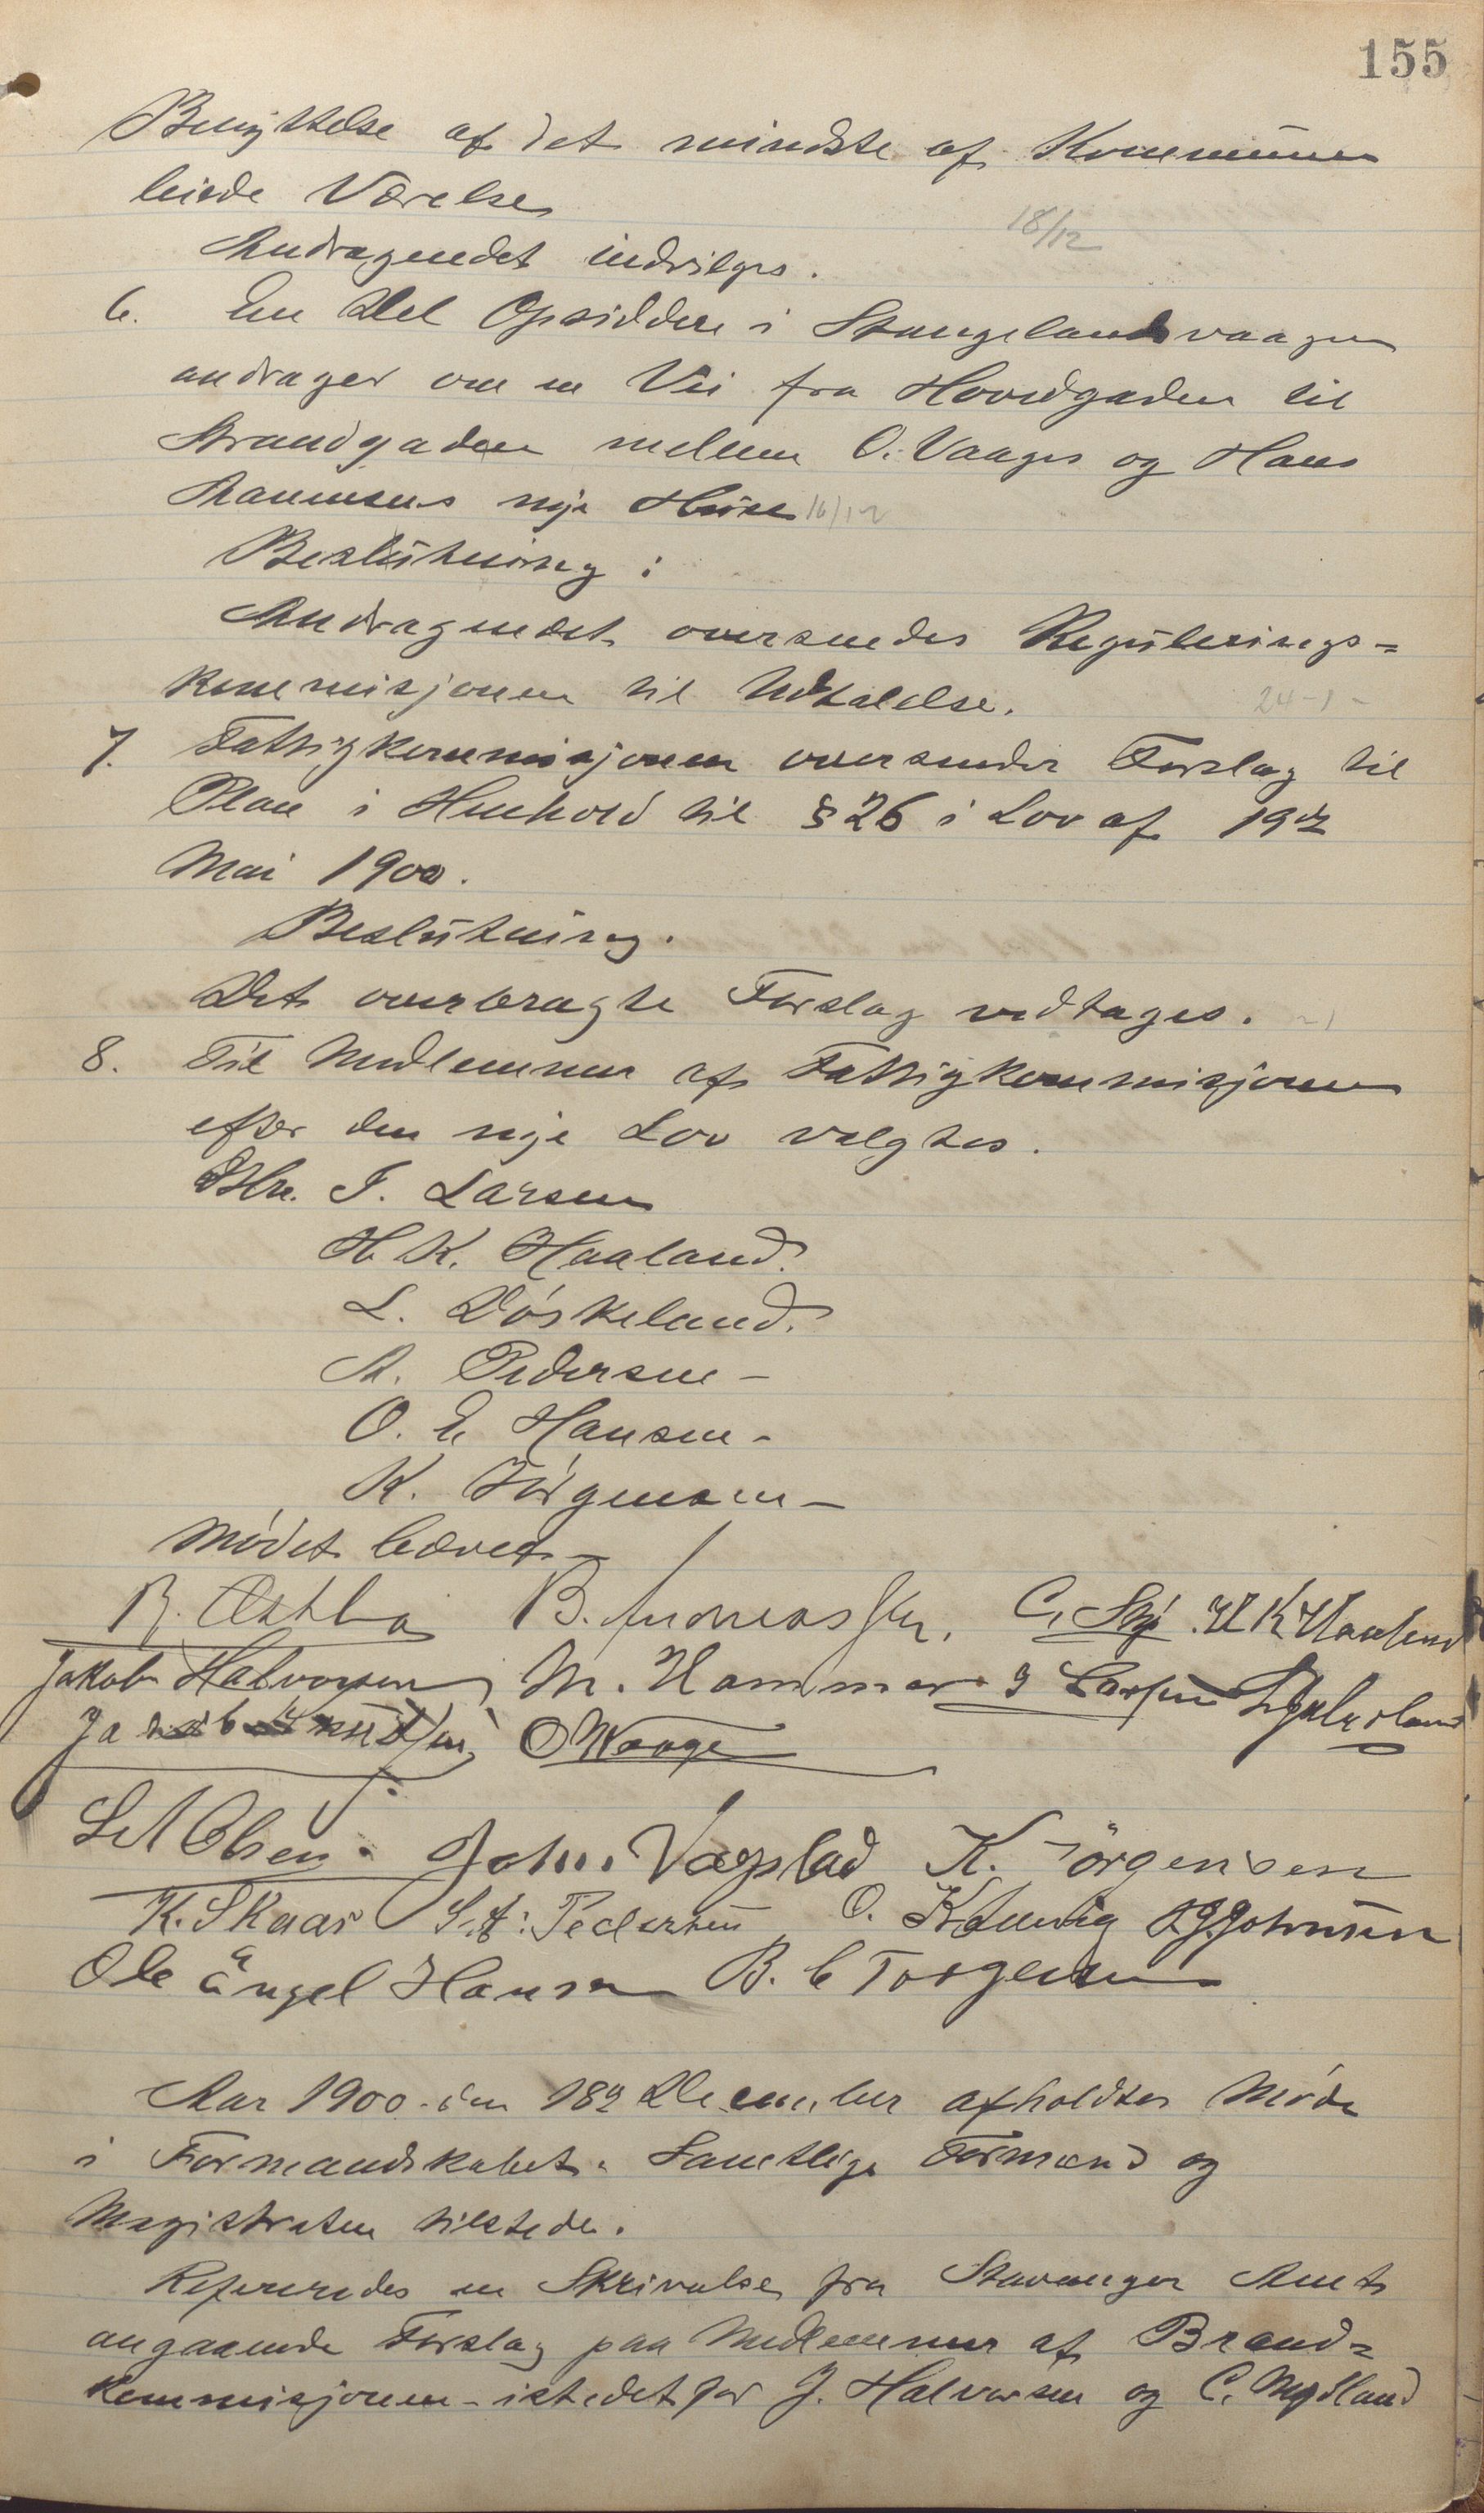 155
Benyttelse af det mindste af Kommunen
leiede Værelse
18/12
Andragendet indvilges.
6. En Del Opsiddere i Stangelandsvaagen
andrager om en Vei fra Hovedgaden til
Strandgaden mellem O. Vaages og Hans
nye Huse 16/12
Beslutning:
Andragendet oversendes Regulerings=
kommisjonen til Udtalelse.
24-1-
7. Fattigkommisjonen oversender Forslag til
Plan i Henhold til § 26 i Lov af 19de
Mai 1900.
Beslutning.
Det overbragte Forslag vedtages.
8. Til Medlemmer af Fattigkommisjonen
efter den nye Lov valgtes.
DHrr. J. Larsen
H. K. Haaland.
L. Døskeland.
A. Pedersen -
O. E. Hansen -
K. Jørgensen -
Mødet hævet -
B. Andreassen. C. H K Haaland
Jakob Halvorsen M. Hammer J Larsen
Jakob Knudsen, O Waage
L A Olsen. John. Vagslad K. Jörgensen
K. Skaar S. A. Pedersen O. K. Ludwig Johnsen
Ole Engel Hansen B. C Torgersen
Aar 1900 den 18de December afholdtes Møde
i Formandskabet. Samtlige Formænd og
Magistraten tilstede.
Refereredes en Skrivelse fra Stavanger Amt
angaaende Forslag paa Medlemmer af Brand=
kommisjonen - istedetfor J. Halvorsen og C. Mydland